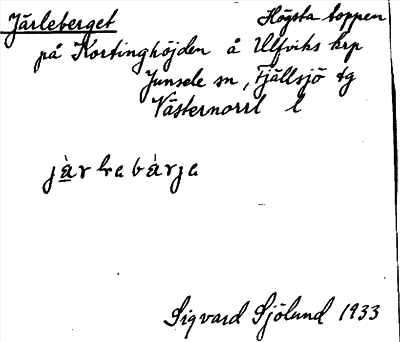 Järleberget Högsta toppen
på Kortinghöjden å Ulfviks krp
Junsele sn, Fjällsjö tg
Västernorrl l
Sigvard Sjölund 1933